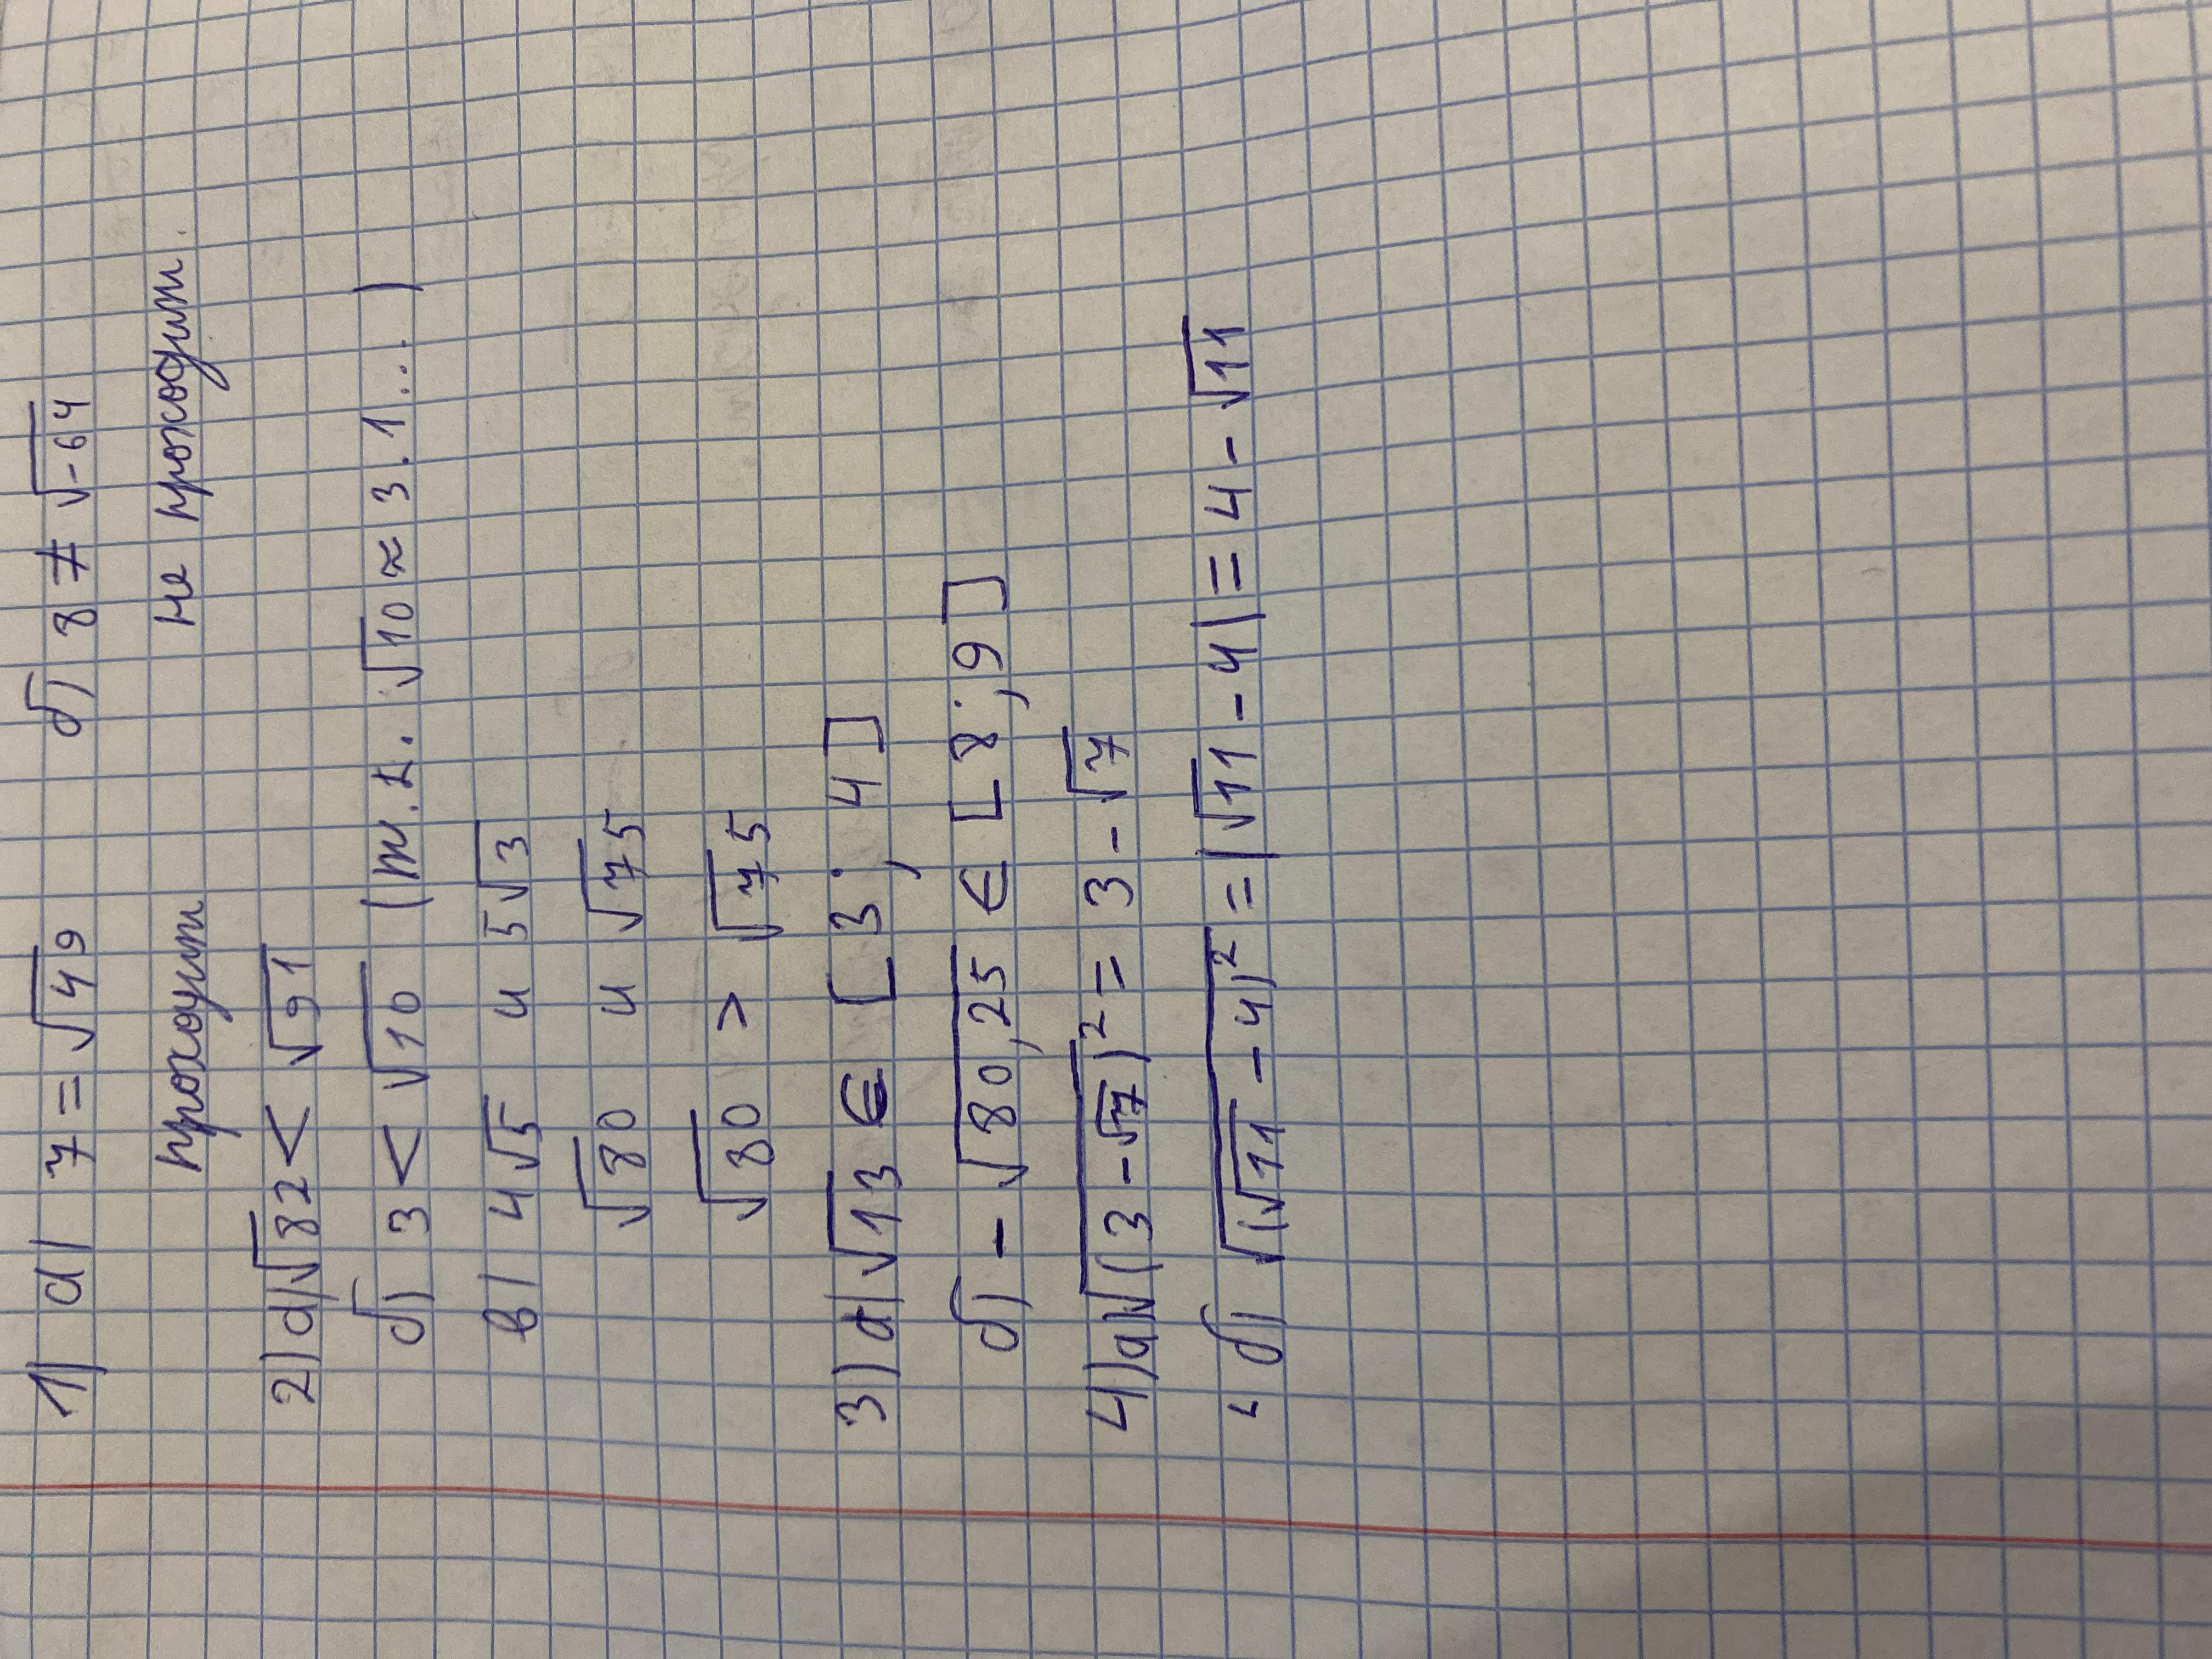 1) а) 7 = √49 б) 8 ≠ √-64
проходит не проходит.
2) а) √82 < √91
б) 3 < √10 (т.к. √10 ≈ 3.1...)
в) 4√5 и 5√3
√80 и √75
√80 > √75
3) а) √13 ∈ [3; 4]
б) - √80,25 ∈ [8; 9]
4) а) √(3 - √7)² = 3 - √7
б) √(√11 - 4)² = |√11 - 4| = 4 - √11